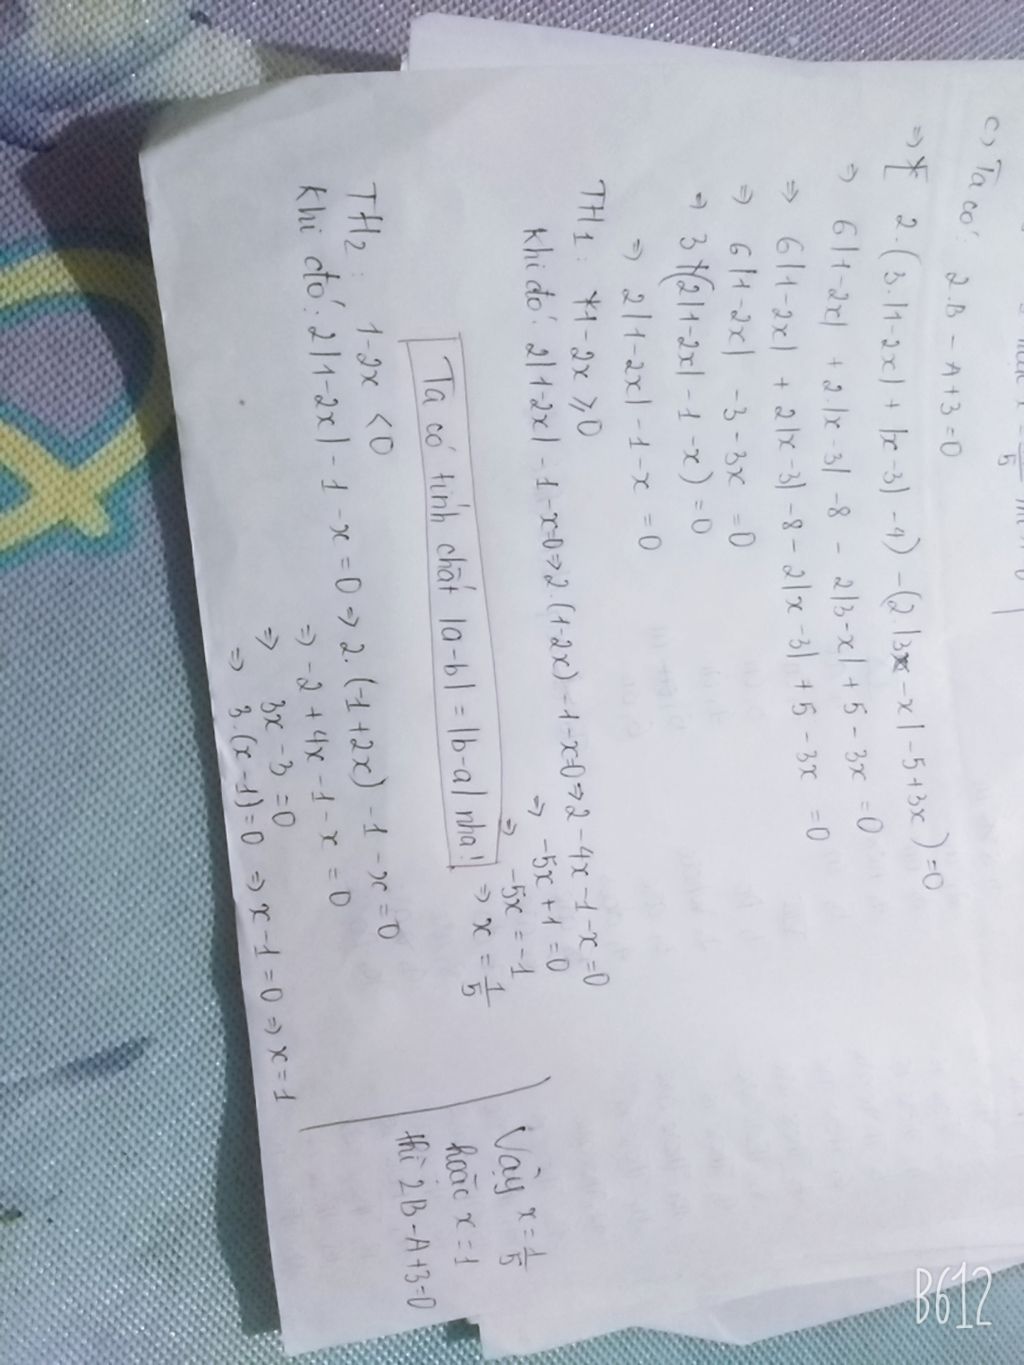 c) Ta có: 2.B - A+3=0
=> [ 2.(3.|1-2x| + |x-3| - 4) - (2.|3-x| - 5+3x) =0
=> 6|1-2x| + 2.|x-3| - 8 - 2|3-x| + 5 - 3x =0
=> 6|1-2x| + 2|x-3| - 8 - 2|x-3| + 5 - 3x =0
=> 6|1-2x| - 3 - 3x =0
=> 3(2|1-2x| - 1 - x) =0
=> 2|1-2x| - 1 - x =0
TH1: 1-2x ≥ 0
Khi đó: 2|1-2x| - 1 - x=0 => 2.(1-2x) - 1 - x=0 => 2 - 4x - 1 - x=0
=> -5x + 1 =0
=> -5x = -1
=> x = 1/5
Ta có tính chất |a-b| = |b-a| nha!
TH2: 1-2x < 0
Khi đó: 2|1-2x| - 1 - x = 0 => 2.(-1+2x) - 1 - x =0
=> -2 + 4x - 1 - x = 0
=> 3x - 3 =0
=> 3.(x-1) =0 => x - 1 = 0 => x = 1
Vậy x = 1/5
hoặc x = 1
thì 2B - A+3=0
B612